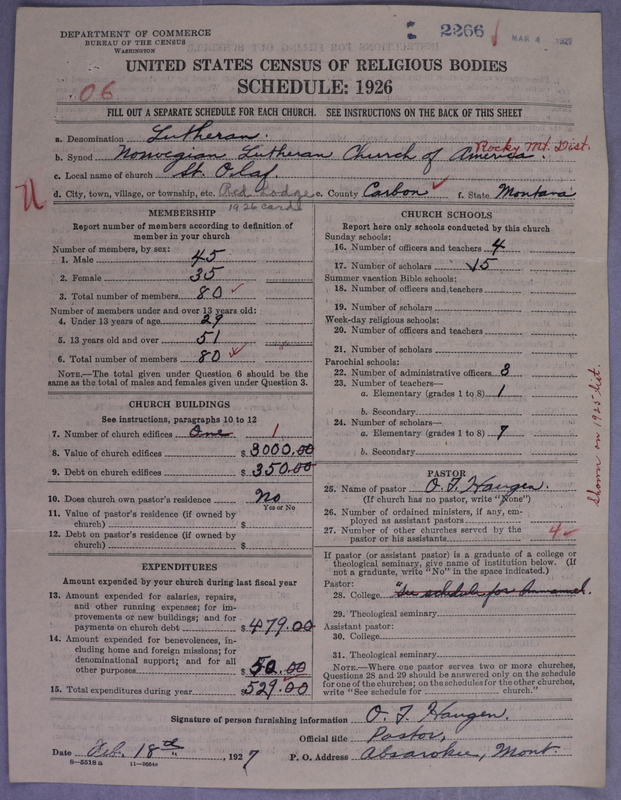 DEPARTMENT OF COMMERCE
BUREAU OF THE CENSUS
WASHINGTON
2266
MAR 4 1927
UNITED STATES CENSUS OF RELIGIOUS BODIES
SCHEDULE: 1926
06
FILL OUT A SEPARATE SCHEDULE FOR EACH CHURCH. SEE INSTRUCTIONS ON THE BACK OF THIS SHEET
a. Denomination Lutheran.
b. Synod Norwegian Lutheran Church of America. Rocky Mt. Dist.
c. Local name of church St. Olaf
d. City, town, village, or township, etc. Red Lodge e. County Carbon f. State Montana
1926 card
U
MEMBERSHIP
Report number of members according to definition of
member in your church
Number of members, by sex:
1. Male 45
2. Female 35
3. Total number of members 80
Number of members under and over 13 years old:
4. Under 13 years of age 29
5. 13 years old and over 51
6. Total number of members 80
NOTE.—The total given under Question 6 should be
same as the total of males and females given under Question 3.
CHURCH BUILDINGS
See instructions, paragraphs 10 to 12
7. Number of church edifices One 1
8. Value of church edifices $ 3000.00
9. Debt on church edifices $ 350.00
10. Does church own pastor's residence No
Yes or No
11. Value of pastor's residence (if owned by
church) $
12. Debt on pastor's residence (if owned by
church) $
EXPENDITURES
Amount expended by your church during last fiscal year
13. Amount expended for salaries, repairs,
and other running expenses; for im-
provements or new buildings; and for
payments on church debt $ 479.00
14. Amount expended for benevolences, in-
cluding home and foreign missions; for
denominational support; and for all
other purposes 50.00
15. Total expenditures during year $ 529.00
CHURCH SCHOOLS
Report here only schools conducted by this church
Sunday schools:
16. Number of officers and teachers 4
17. Number of scholars 15
Summer vacation Bible schools:
18. Number of officers and teachers
19. Number of scholars
Week-day religious schools:
20. Number of officers and teachers
21. Number of scholars
Parochial schools:
22. Number of administrative officers 3
23. Number of teachers—
a. Elementary (grades 1 to 8) 1
b. Secondary
24. Number of scholars—
a. Elementary (grades 1 to 8) 7
b. Secondary
Shown on 1925 list.
PASTOR
25. Name of pastor O. T. Haugen.
(If church has no pastor, write "None")
26. Number of ordained ministers, if any, em-
ployed as assistant pastors
27. Number of other churches served by the
pastor or his assistants 4
If pastor (or assistant pastor) is a graduate of a college or
theological seminary, give name of institution below. (If
not a graduate, write "No" in the space indicated.)
Pastor:
28. College "See schedule for Immanuel.
29. Theological seminary
Assistant pastor:
30. College
31. Theological seminary
NOTE.—Where one pastor serves two or more churches,
Questions 28 and 29 should be answered only on the schedule
for one of the churches; on the schedules for the other churches,
write "See schedule for church."
Signature of person furnishing information O. T. Haugen.
Official title Pastor,
Date Feb. 18th, 1927 P. O. Address Absarokee, Mont.
8—5518 a